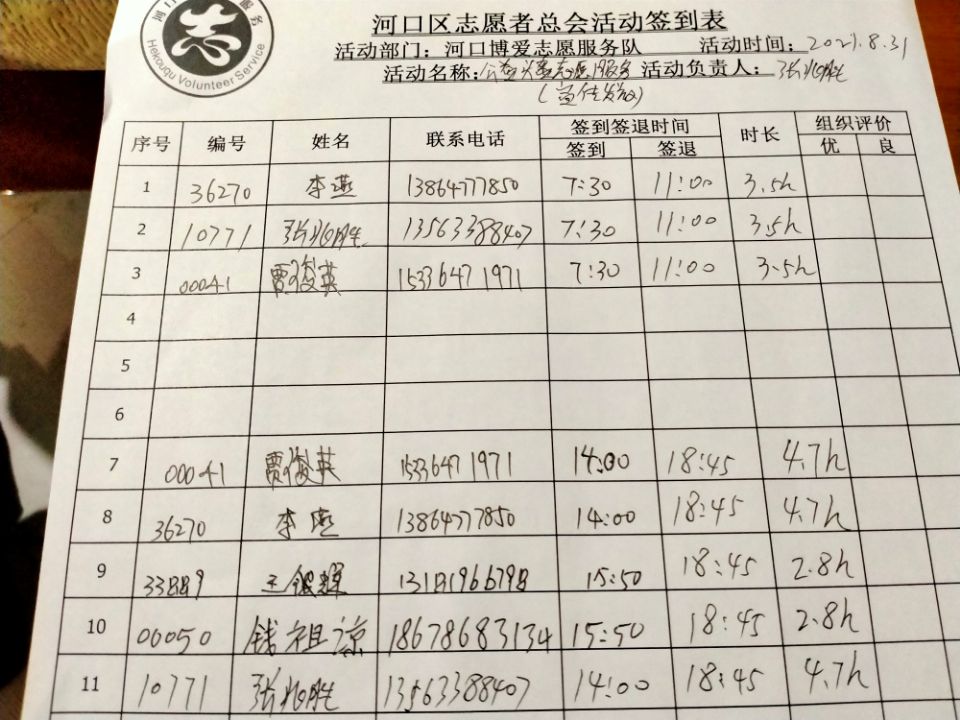 志
Hekouqu Volunteer Service
河口区志愿者总会活动签到表
活动部门：河口博爱志愿服务队 活动时间：2021.8.31
活动名称： 志愿服务 活动负责人：张兆胜
（宣传发放）
序号 编号 姓名 联系电话 签到签退时间 时长 组织评价
签到 签退 优 良
1 36270 李燕 13864777850 7:30 11:00 3.5h
2 10771 张兆胜 13563388407 7:30 11:00 3.5h
3 00041 贾俊英 15336471971 7:30 11:00 3.5h
4
5
6
7 00041 贾俊英 15336471971 14:00 18:45 4.7h
8 36270 李燕 13864777850 14:00 18:45 4.7h
9 33889 王银辉 13181966798 15:50 18:45 2.8h
10 00050 钱祖谅 18678683134 15:50 18:45 2.8h
11 10771 张兆胜 13563388407 14:00 18:45 4.7h